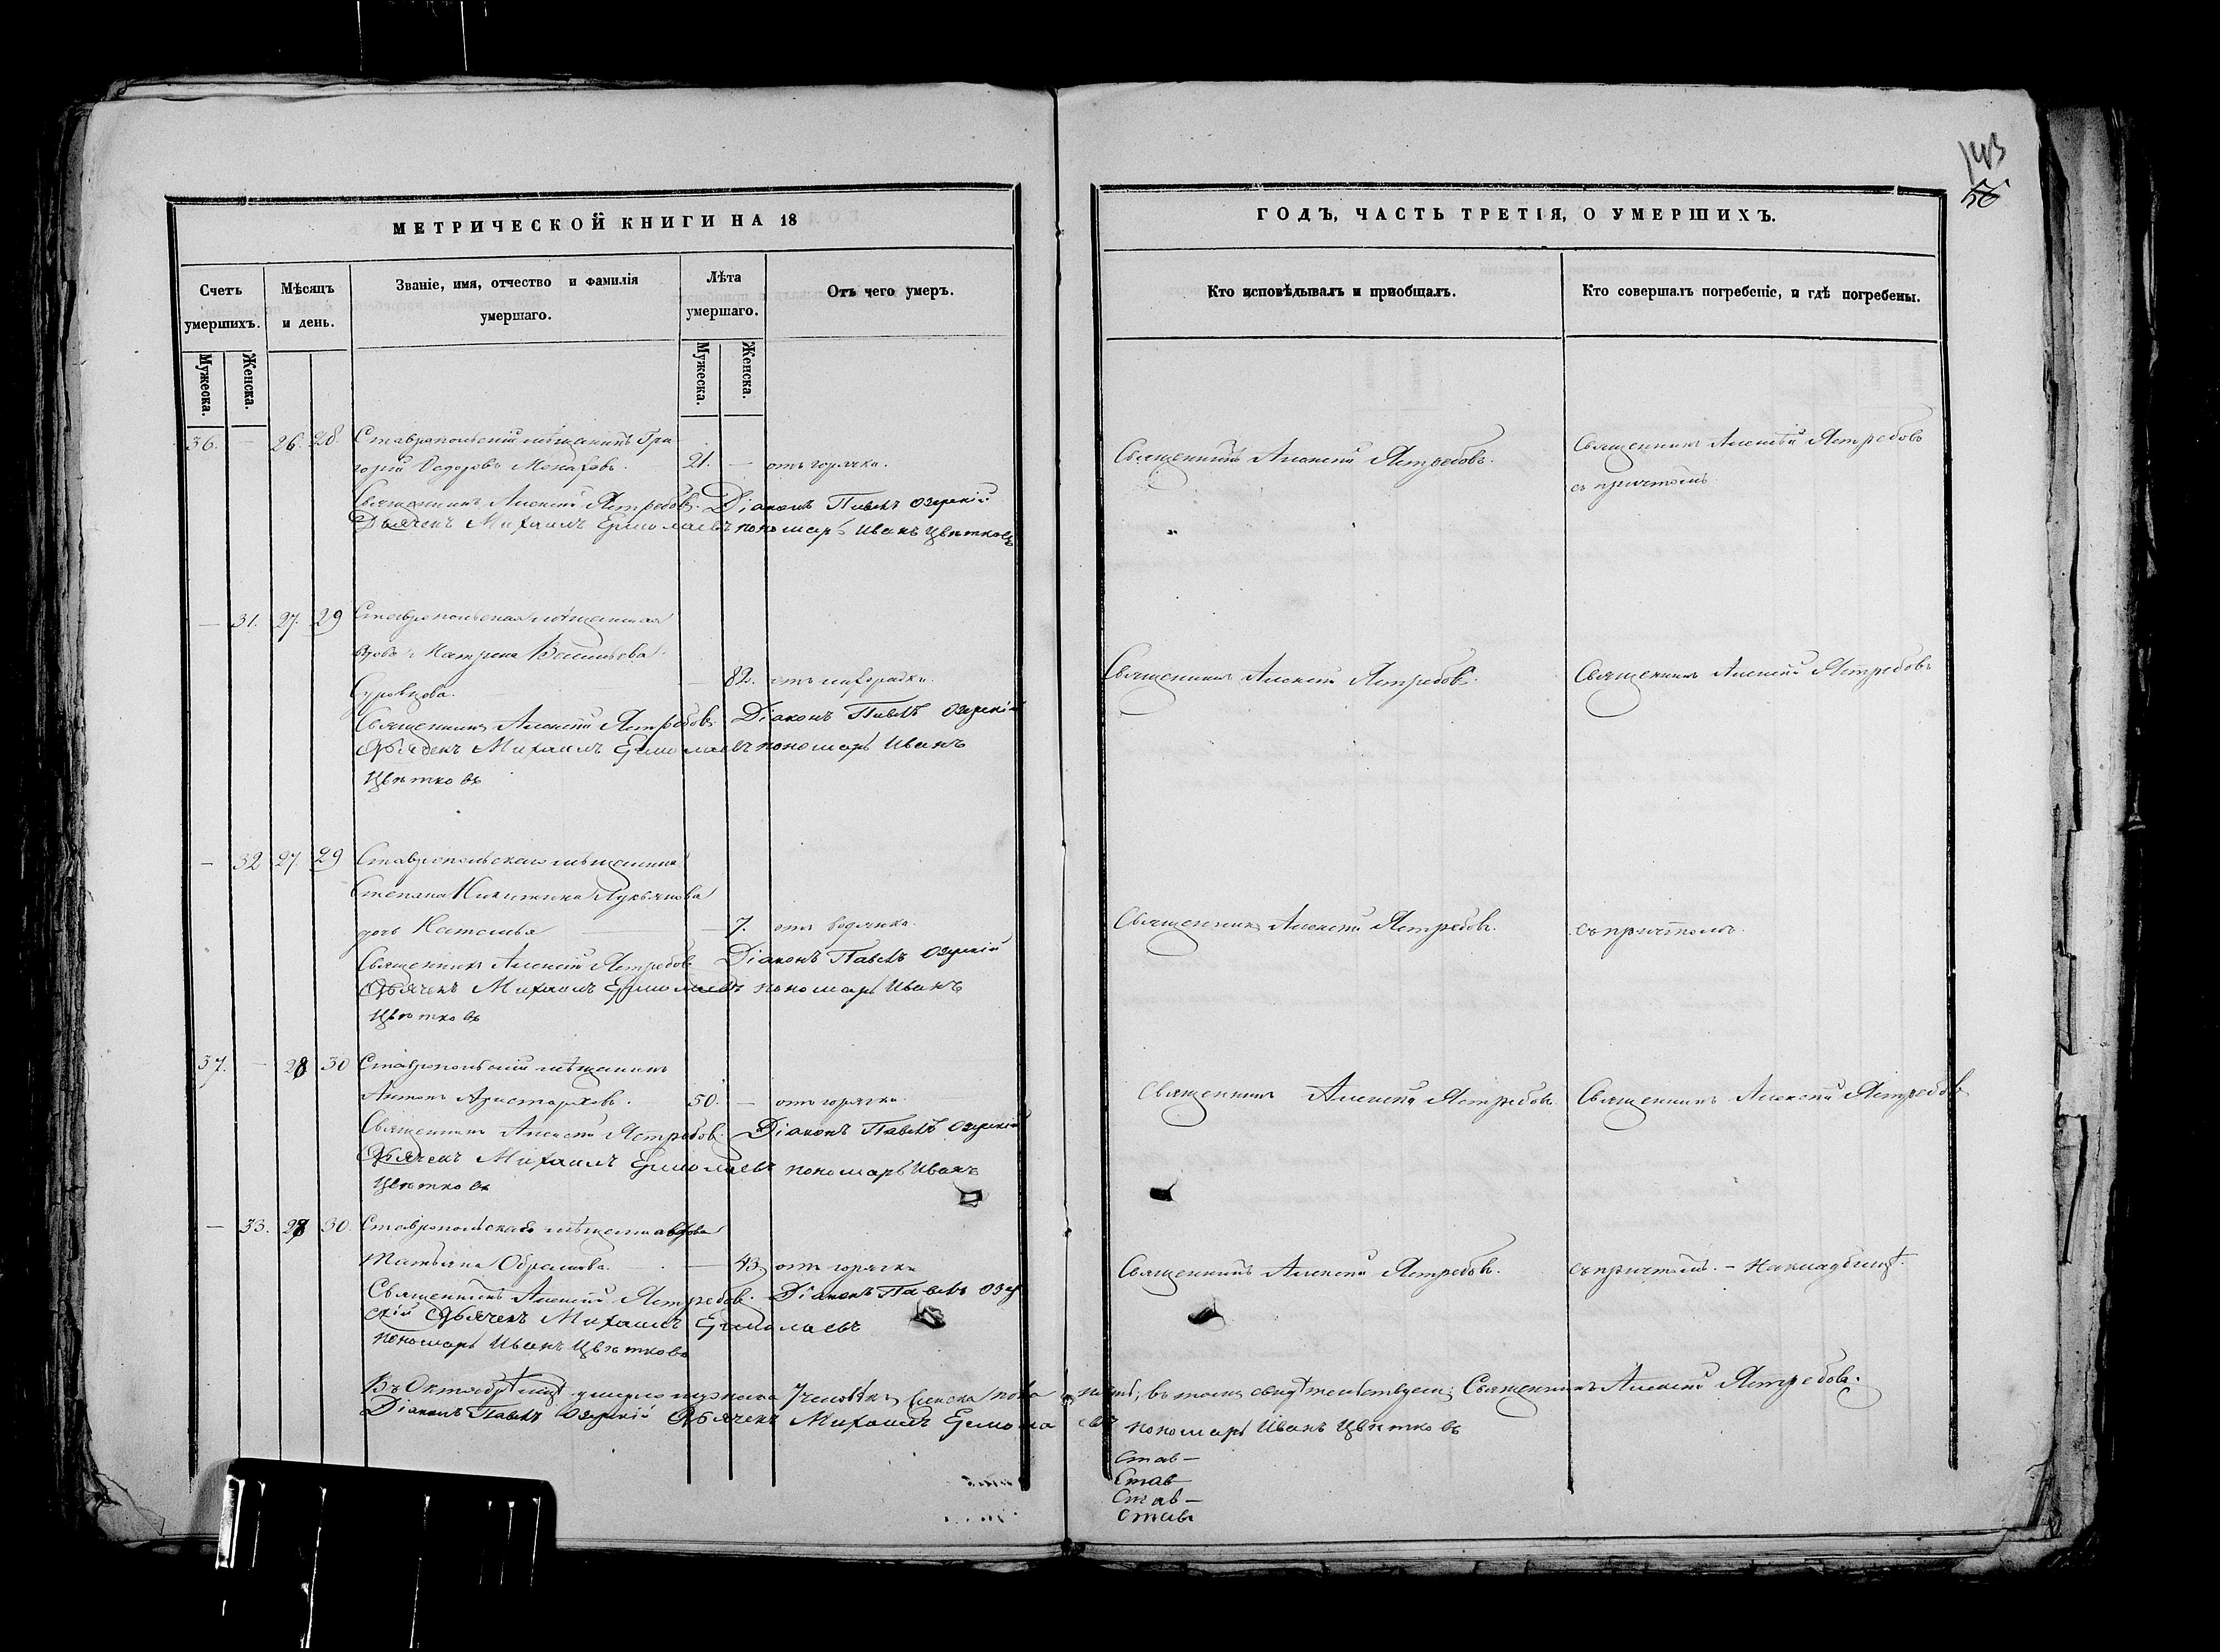 143
56
МЕТРИЧЕСКОЙ КНИГИ НА 18
ГОДЪ, ЧАСТЬ ТРЕТІЯ, О УМЕРШИХЪ.
Счетъ умершихъ.
Мѣсяцъ и день.
Званіе, имя, отчество и фамилія умершаго.
Лѣта умершаго.
Отъ чего умеръ.
Кто исповѣдывалъ и пріобщалъ.
Кто совершалъ погребеніе, и гдѣ погребены.
Мужеска.
Женска.
Мужеска.
Женска.
36. — 26. 28. Ставропольскій мѣщанинъ Гри
горій Федоровъ 21. — отъ горячки. Священникъ Алексѣй Ястребовъ. Священникъ Алексѣй Ястребовъ
съ причтомъ
Священникъ Алексѣй Ястребовъ. Діаконъ Павелъ Озерскій
Дьячекъ Михаилъ Ермолаевъ пономарь Иванъ Цвѣтковъ
— 31. 27. 29 Ставропольская мѣщанская
вдова Матрена Васильева
— 82. отъ лихорадки. Священникъ Алексѣй Ястребовъ. Священникъ Алексѣй Ястребовъ
Священникъ Алексѣй Ястребовъ Діаконъ Павелъ Озерскій
Дьячекъ Михаилъ Ермолаевъ пономарь Иванъ
Цвѣтковъ
— 32 27 29 Ставропольскаго мѣщанина
Степана Никитина Лукьянова
дочь Наталья — 7. отъ водянки. Священникъ Алексѣй Ястребовъ. съ причтомъ.
Священникъ Алексѣй Ястребовъ Діаконъ Павелъ Озерскій
Дьячекъ Михаилъ Ермолаевъ пономарь Иванъ
Цвѣтковъ
37. — 28 30 Ставропольскій мѣщанинъ
Антонъ Аристарховъ. 50. — отъ горячки. Священникъ Алексѣй Ястребовъ Священникъ Алексѣй Ястребовъ
Священникъ Алексѣй Ястребовъ. Діаконъ Павелъ Озерскій
Дьячекъ Михаилъ Ермолаевъ пономарь Иванъ
Цвѣтковъ
— 33. 28 30. Ставропольская мѣщанка вдова
Татьяна — 43. отъ горячки Священникъ Алексѣй Ястребовъ. съ причтомъ. — На кладбищѣ.
Священникъ Алексѣй Ястребовъ. Діаконъ Павелъ Озер
скій Дьячекъ Михаилъ Ермолаевъ
пономарь Иванъ Цвѣтковъ
Въ Октябрѣ умерло мужска 7 человѣкъ, женска въ томъ свидѣтельствуемъ: Священникъ Алексѣй Ястребовъ.
Діаконъ Павелъ Озерскій Дьячекъ Михаилъ Ермолаевъ пономарь Иванъ Цвѣтковъ
Став —
Став
Став —
Став